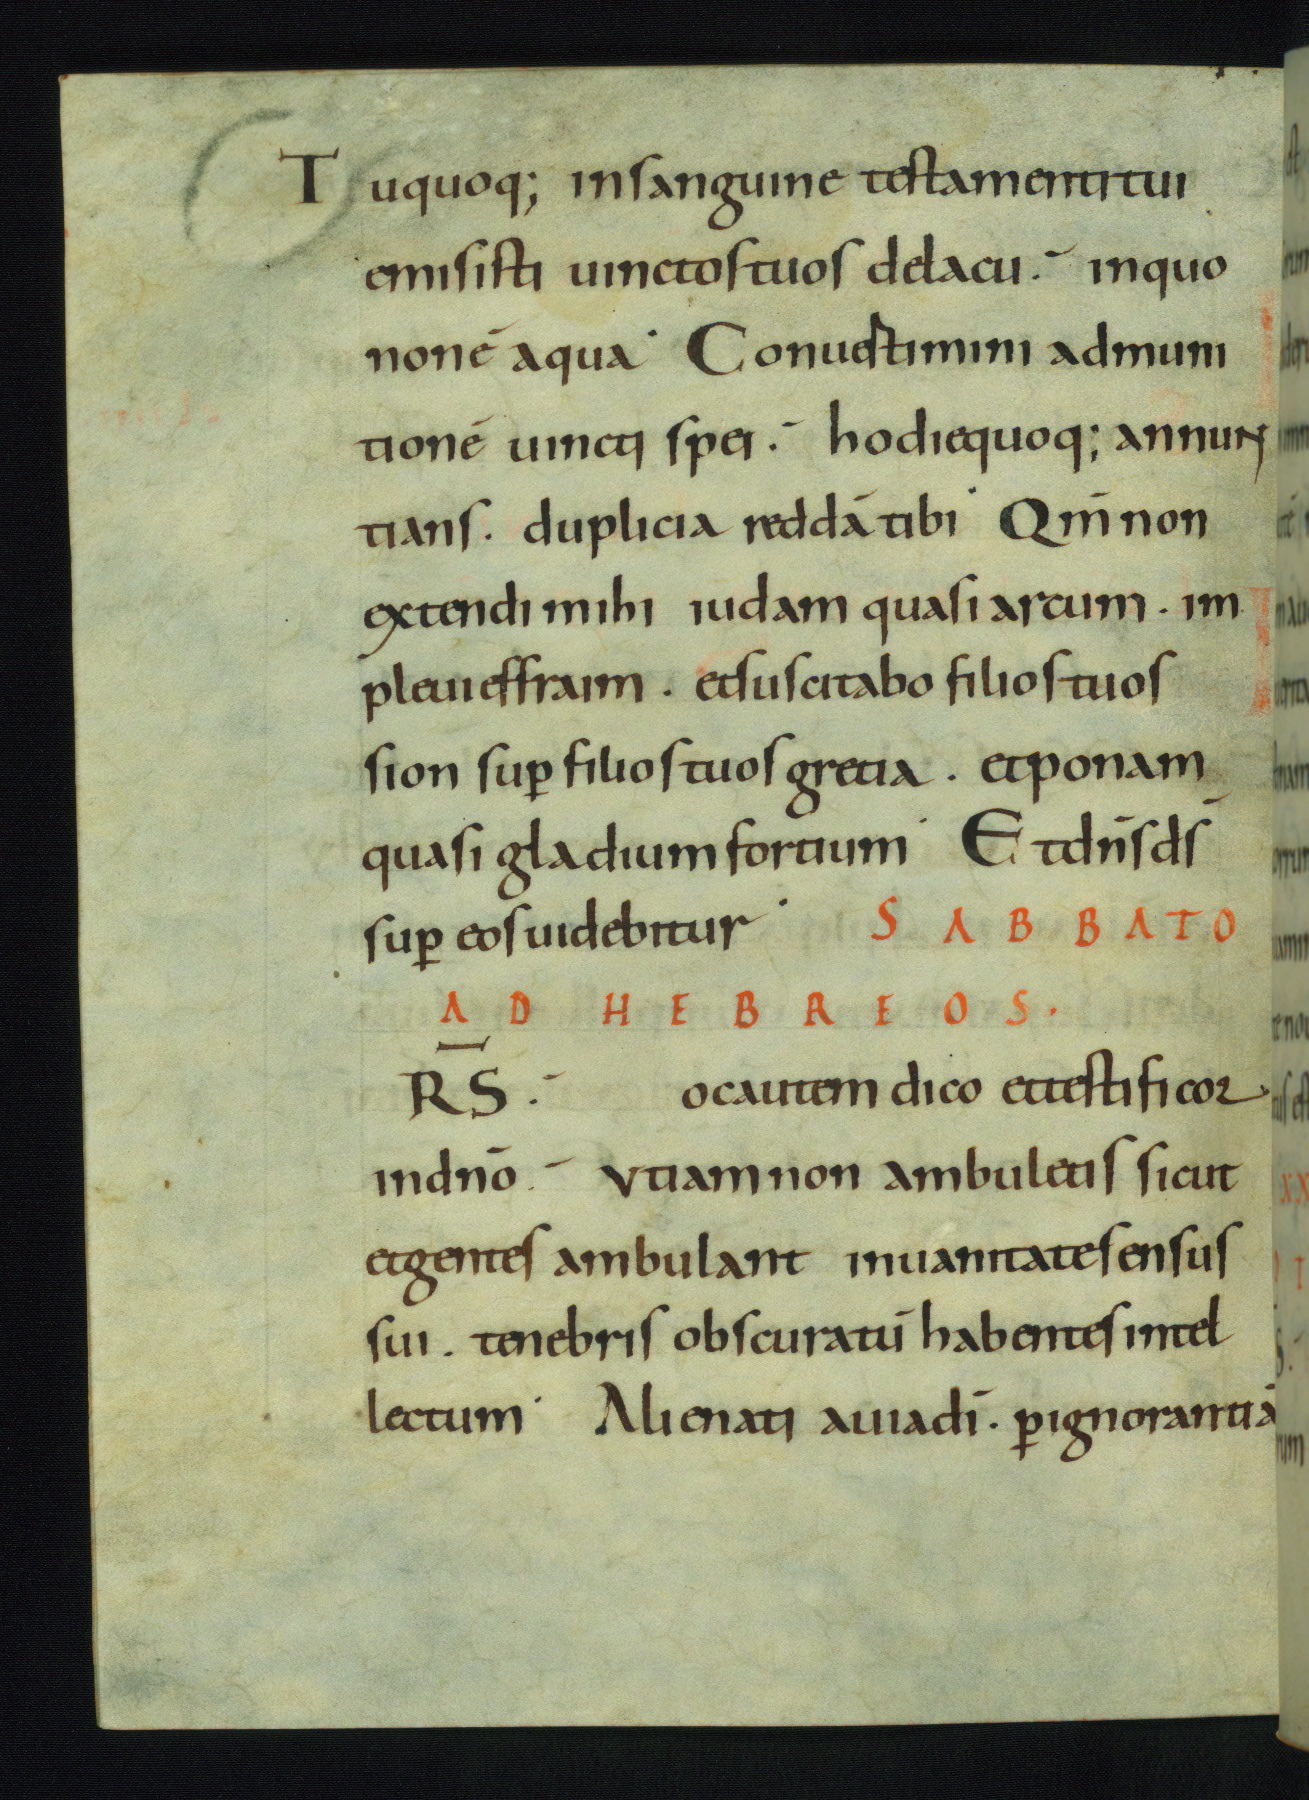 Tuquoq; insanguine testamentitui
emisisti uinctostuos delacu. inquo
nonē aqua Conuestimini admuni
tionē uincti spei. hodiequoq; annun
tians. duplicia reddā tibi Qm̄ non
extendi mihi iudam quasi arcum. im
pleuieffraim. etsuscitabo filiostuos
sion sup̱ filiostuos gretia. etponam
quasi gladium fortium Et dn̄s ds̄
sup̱ eos uidebitur SABBATO
AD HEBREOS.
R̄S. ocautem dico ettestificor
indn̄o. Vtiamnon ambuletis sicut
etgentes ambulant inuanitatesensus
sui. tenebris obscuratū habentesintel
lectum Alienati auiadī. p̱ignorantiā